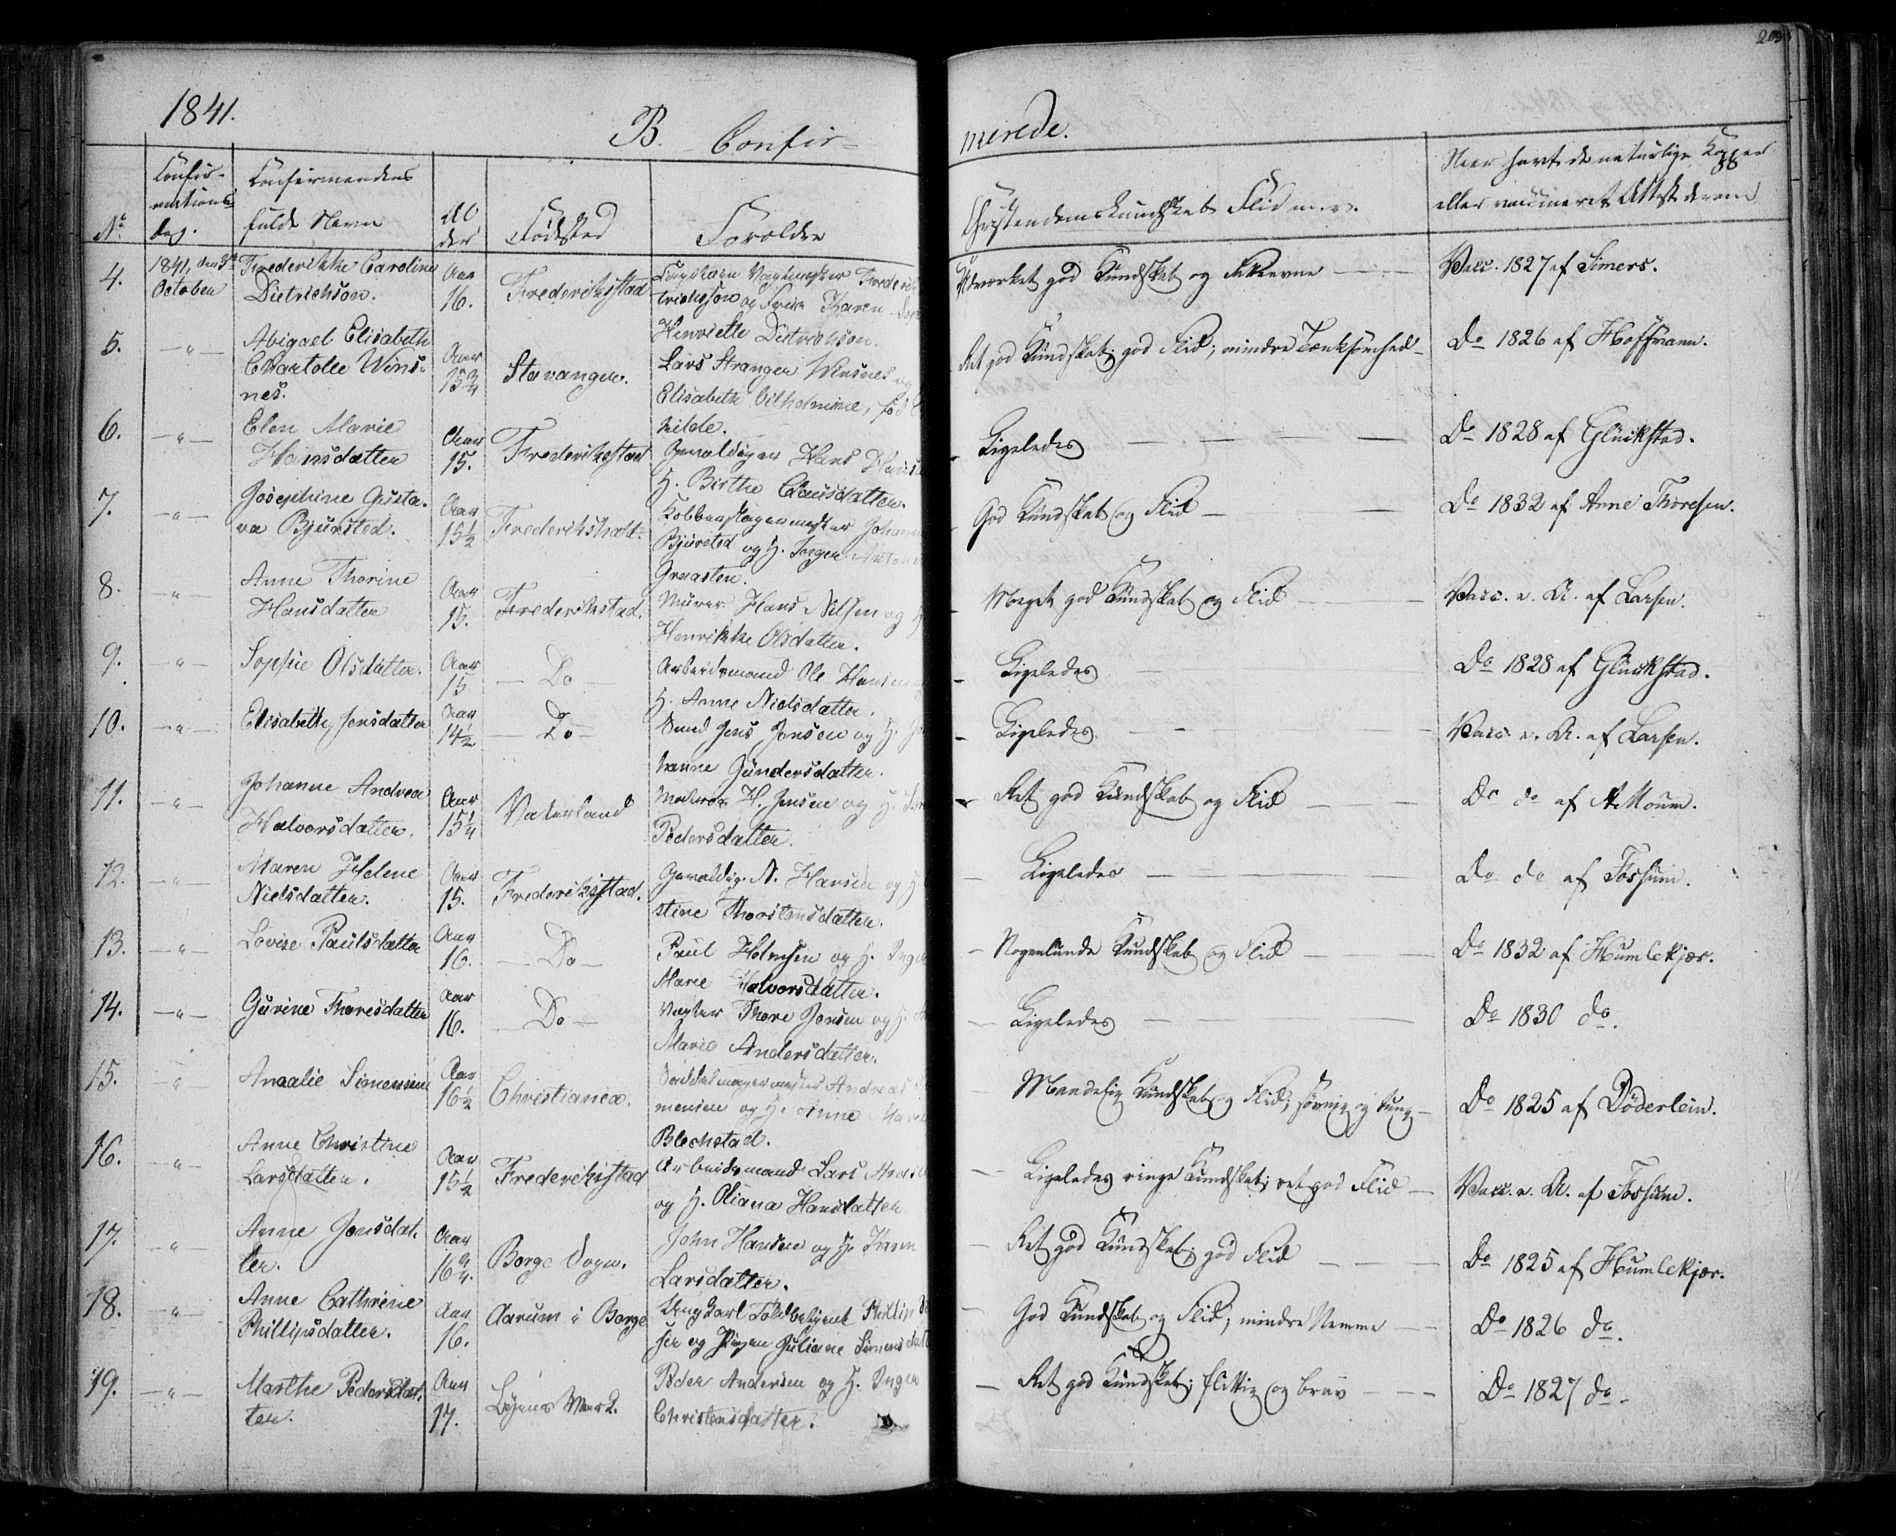 1841.
B. Confir-
merede.
No.
Confir-
mations
dag.
Confirmandens
fulde Navn
Al
der
Fødested
Forældre
Christendomskundskab Flid m. v.
Naar havt de naturlige Kopper
eller vaccineret Attest derom
4. 1841, den 3 October Frederikke Caroline Dietrichson. Aar 16. Frederikstad
Henriette Dietrichson.
Udmærket god Kundskab og
Vacc. 1827 af Simers.
5. -"- Abigael Elisabeth Wins- nes. Aar 15 3/4 Stavanger.
Lars Stranger Winsnes og
Elisabeth Vilhelmine, fød
hilde.
Ret god Kundskab; god Flid; mindre Tænksomhed
Do 1826 af Hoffmann.
6. -"- Elen Marie Hansdatter Aar 15. Frederikstad
Gevaldiger Hans
H. Birthe Clausdatter.
Ligeledes
Do 1828 af Glückstad.
7. -"- Josephine Gusta- va Bjursted. Aar 15 1/2 Frederikshald
Kobberslagermester
Bjursted og H. Inger
Graasten.
God Kundskab og Flid
Do 1832 af Anne Thoresen.
8. -"- Anne Thorine Hansdatter Aar 15. Frederikstad.
Murer Hans Nilsen og H
Henrikke Olsdatter.
Meget god Kundskab og Flid
Vacc. e. A. af Larsen.
9. -"- Sophie Olsdatter. Aar 15 Do
Arbeidsmand Ole Hansen
H. Anne Nielsdatter.
Ligeledes
Do 1828 af Glückstad.
10. -"- Elisabeth Jensdatter Aar 14 1/2 Do
Jens Jensen og H.
hanne Gundersdatter.
Ligeledes
Vacc. e. A. af Larsen.
11. -"- Johanne Andrea Halvorsdatter. Aar 15 1/4 Vaterland
H. Jensen og H.
Pedersdatter.
Ret god Kundskab og Flid
Do do af A. Moum.
12. -"- Maren Helene Nielsdatter. Aar 15. Frederikstad.
Gevaldig. N. Hansen og H
stine Thorstensdatter.
Ligeledes
Do do af Fossum.
13. -"- Lovise Paulsdatter Aar 16. Do
Paul Holmsen og H. Inge
Marie Halvorsdatter.
Nogenlunde Kundskab og Flid
Do 1832 af Humlekjær.
14. -"- Gurine Thoresdatter Aar 16. Do
Vægter Thore Jensen og H.
Marie Andersdatter.
Ligeledes
Do 1830 do.
15. -"- Amalie Simensen Aar 16 1/2 Christiania.
Saddelmagermester Andreas
mensen og H. Anne
Blechstad.
Maadelig Kundskab og Flid; søvnig og tung
Do 1825 af Døderlein.
16. -"- Anne Christine Larsdatter. Aar 15 1/2 Frederikstad
Arbeidsmand Lars
og H. Oliana Hansdatter
Ligeledes ringe Kundskab; ret god Flid
Vacc. e. A. af Fossum.
17. -"- Anne Jonsdat- ter. Aar 16 Borge Sogn.
John Hansen og H. Karen
Larsdatter.
Ret god Kundskab; god Flid
Do 1825 af Humlekjær.
18. -"- Anne Cathrine Phillipsdatter. Aar 16. Aarum i Borge
Ungkarl Toldbetjent Phillip
og Pigen Juliane Simensdatt
God Kundskab og Flid; mindre Nemme
Do 1826 do.
19. -"- Marthe Pedersdat- ter. Aar 17.
Peder Andersen og H. Inger
Christensdatter.
Ret god Kundskab; flittig og brav
Do 1827 do.